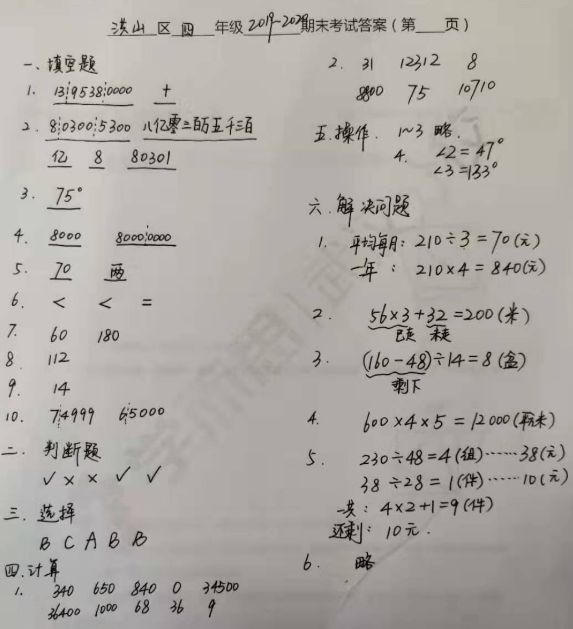 洪山 区 四 年级 2019-2020 期末考试答案（第 页）
一、填空题
1. 13|9538|0000 十
2. 8|0300|5300 八亿零三百万五千三百
亿 8 80301
3. 75°
4. 8000 8000|0000
5. 70 两
6. < < =
7. 60 180
8. 112
9. 14
10. 7|4999 6|5000
二、判断题
✓ × × ✓ ✓
三、选择
B C A B B
四.计算
1. 340 650 840 0 34500
36400 1000 68 36 9
2. 31 12312 8
8800 75 10710
五.操作. 1~3 略.
4. ∠2=47°
∠3=133°
六.解决问题
1. 平均每月: 210÷3=70(元)
一年: 210×4=840(元)
2. 56×3+32=200(米)
已走 未走
3. (160-48)÷14=8(盒)
剩下
4. 600×4×5=12000(平方米)
5. 230÷48=4(组)……38(元)
38÷28=1(件)……10(元)
一共: 4×2+1=9(件)
还剩: 10元.
6. 略